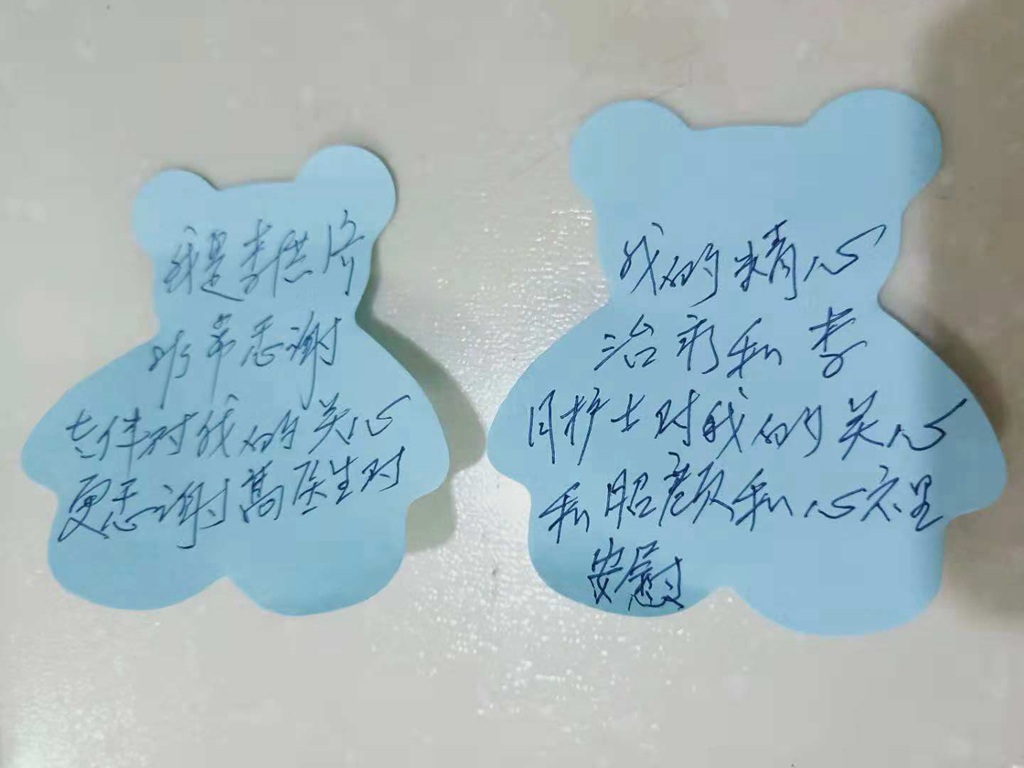 我是李洪济
非常感谢
对我的关心
更感谢高医生对
我的精心
治疗和李
护士对我的关心
和照顾和心里
安慰